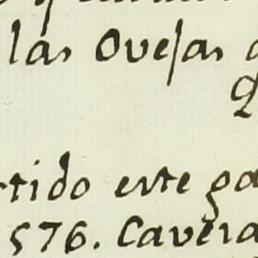 las Ovejas
rtido este ga
576. Cavera